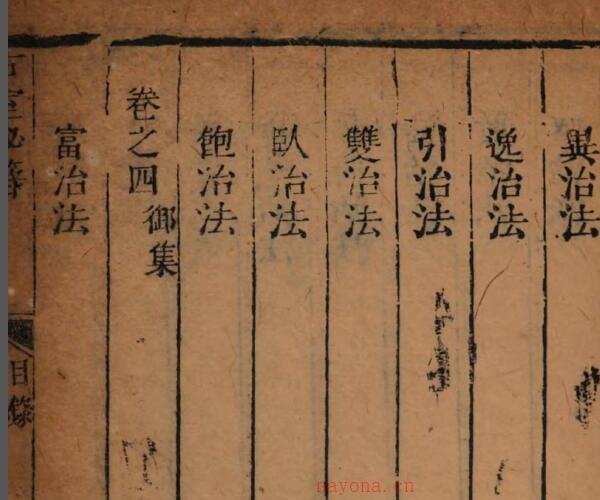 異治法
逸治法
引治法
雙治法
臥治法
飽治法
卷之四 御集
富治法
石室秘籙
目錄
nayona.cn